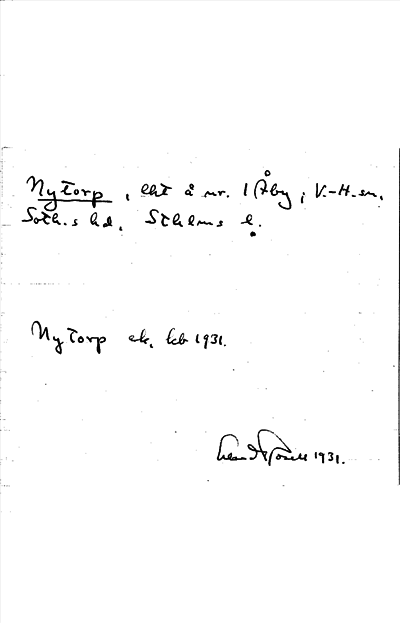 Nytorp, lht å nr. 1 Åby, V.-H. sn,
Soth.s hd, Sthlms l.
Nytorp ek. kb 1931.
1931.